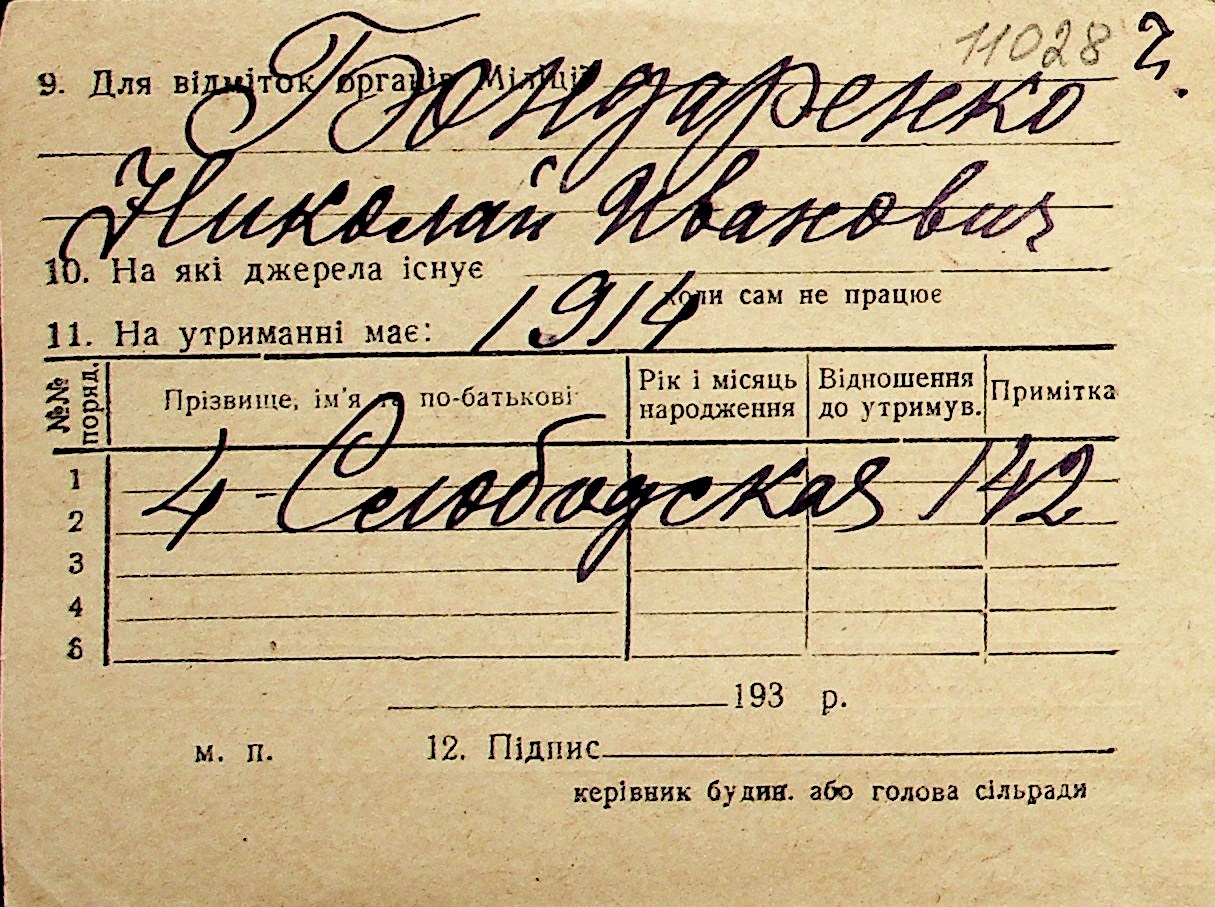 11028 2.
9. Для відміток органів Міліції
Бондаренко
Николай Иванович
10. На які джерела існує
коли сам не працює
11. На утриманні має:
1914
№№ поряд. Прізвище, ім'я та по-батькові Рік і місяць народження Відношення до утримув. Примітка
1
4-Слободская 142
2
3
4
5
193 р.
м. п. 12. Підпис
керівник будин. або голова сільради